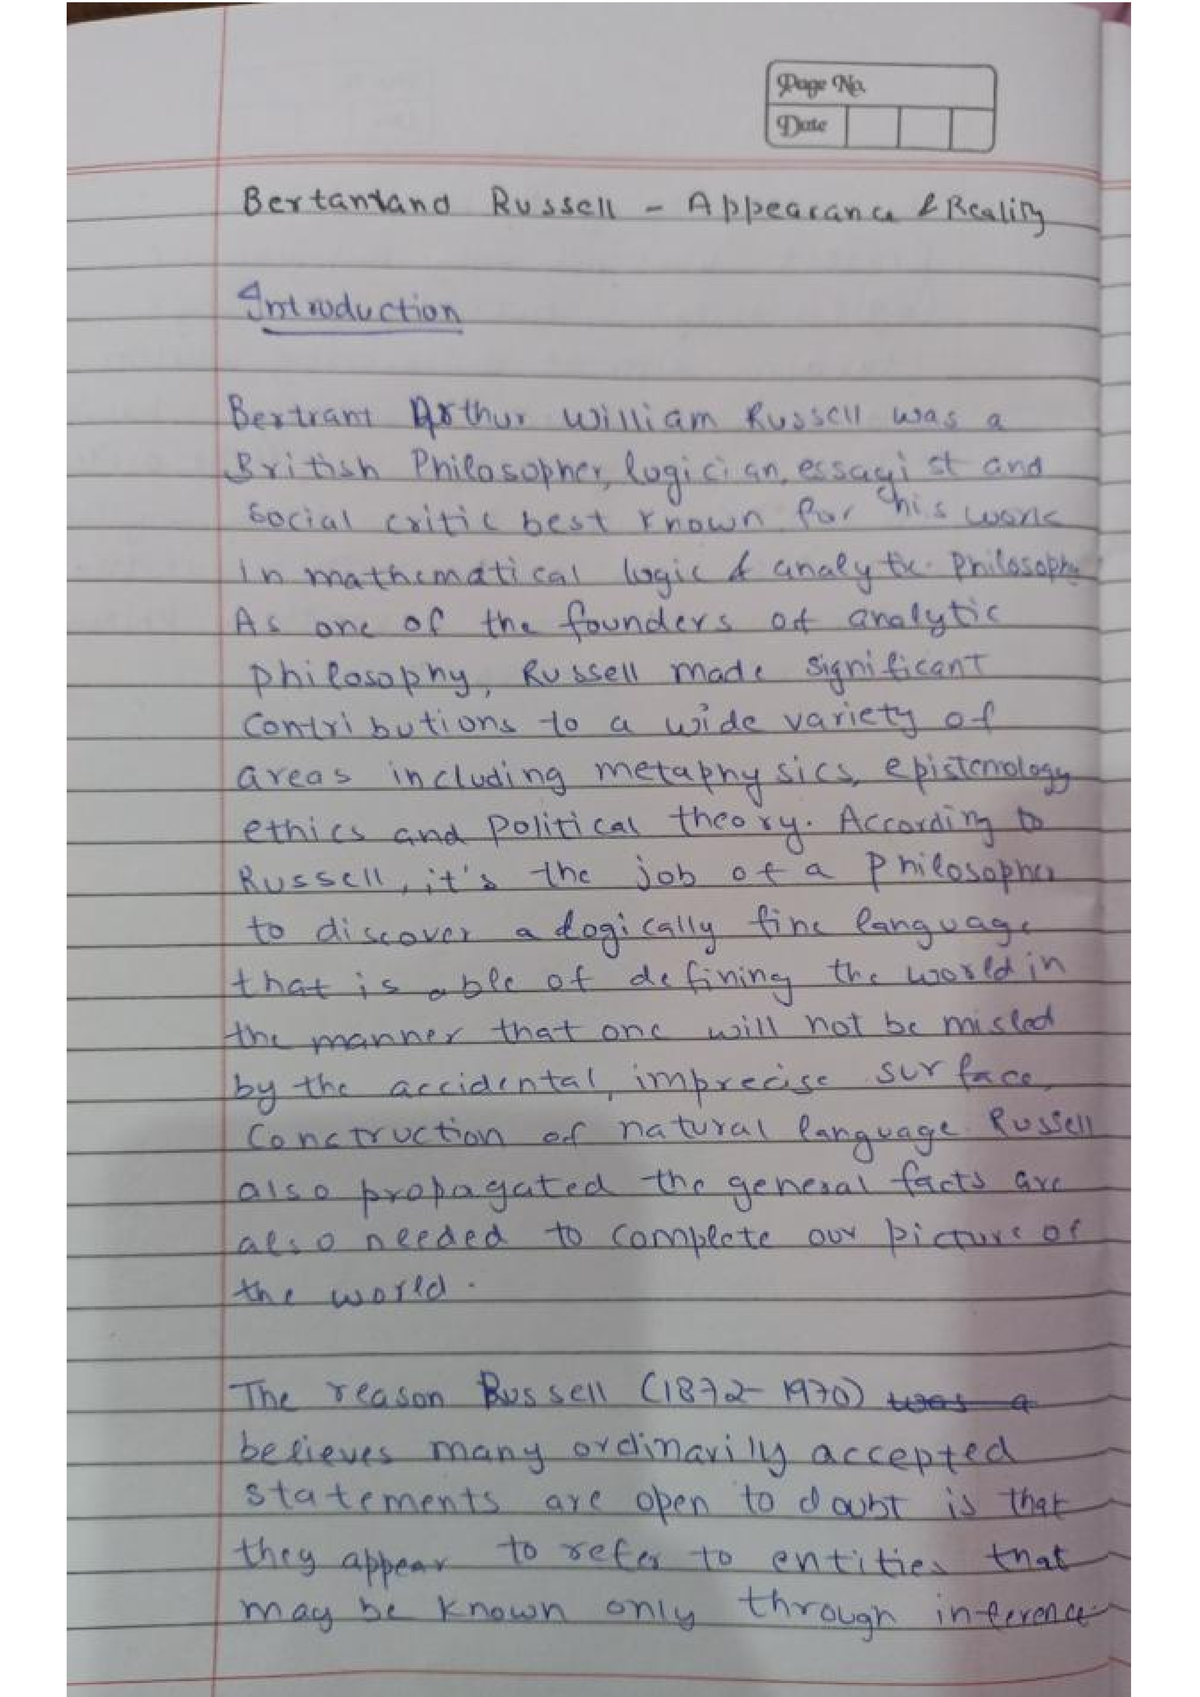 Page No.
Date
Bertantand Russell - Appearance & Reality
Introduction
Bertrant Arthur William Russell was a
British Philosopher, logician, essayist and
social critic best known for his work
in mathematical logic & analytic Philosophy
As one of the founders of analytic
philosophy, Russell made significant
contributions to a wide variety of
areas including metaphysics, epistemology
ethics and political theory. According to
Russell, it's the job of a Philosopher
to discover a logically fine language
that is able of defining the world in
the manner that one will not be misled
by the accidental, imprecise surface
Construction of natural language. Russell
also propagated the general facts are
also needed to complete our picture of
the world.
The reason Russell (1872-1970) was a
believes many ordinarily accepted
statements are open to doubt is that
they appear to refer to entities that
may be known only through inference